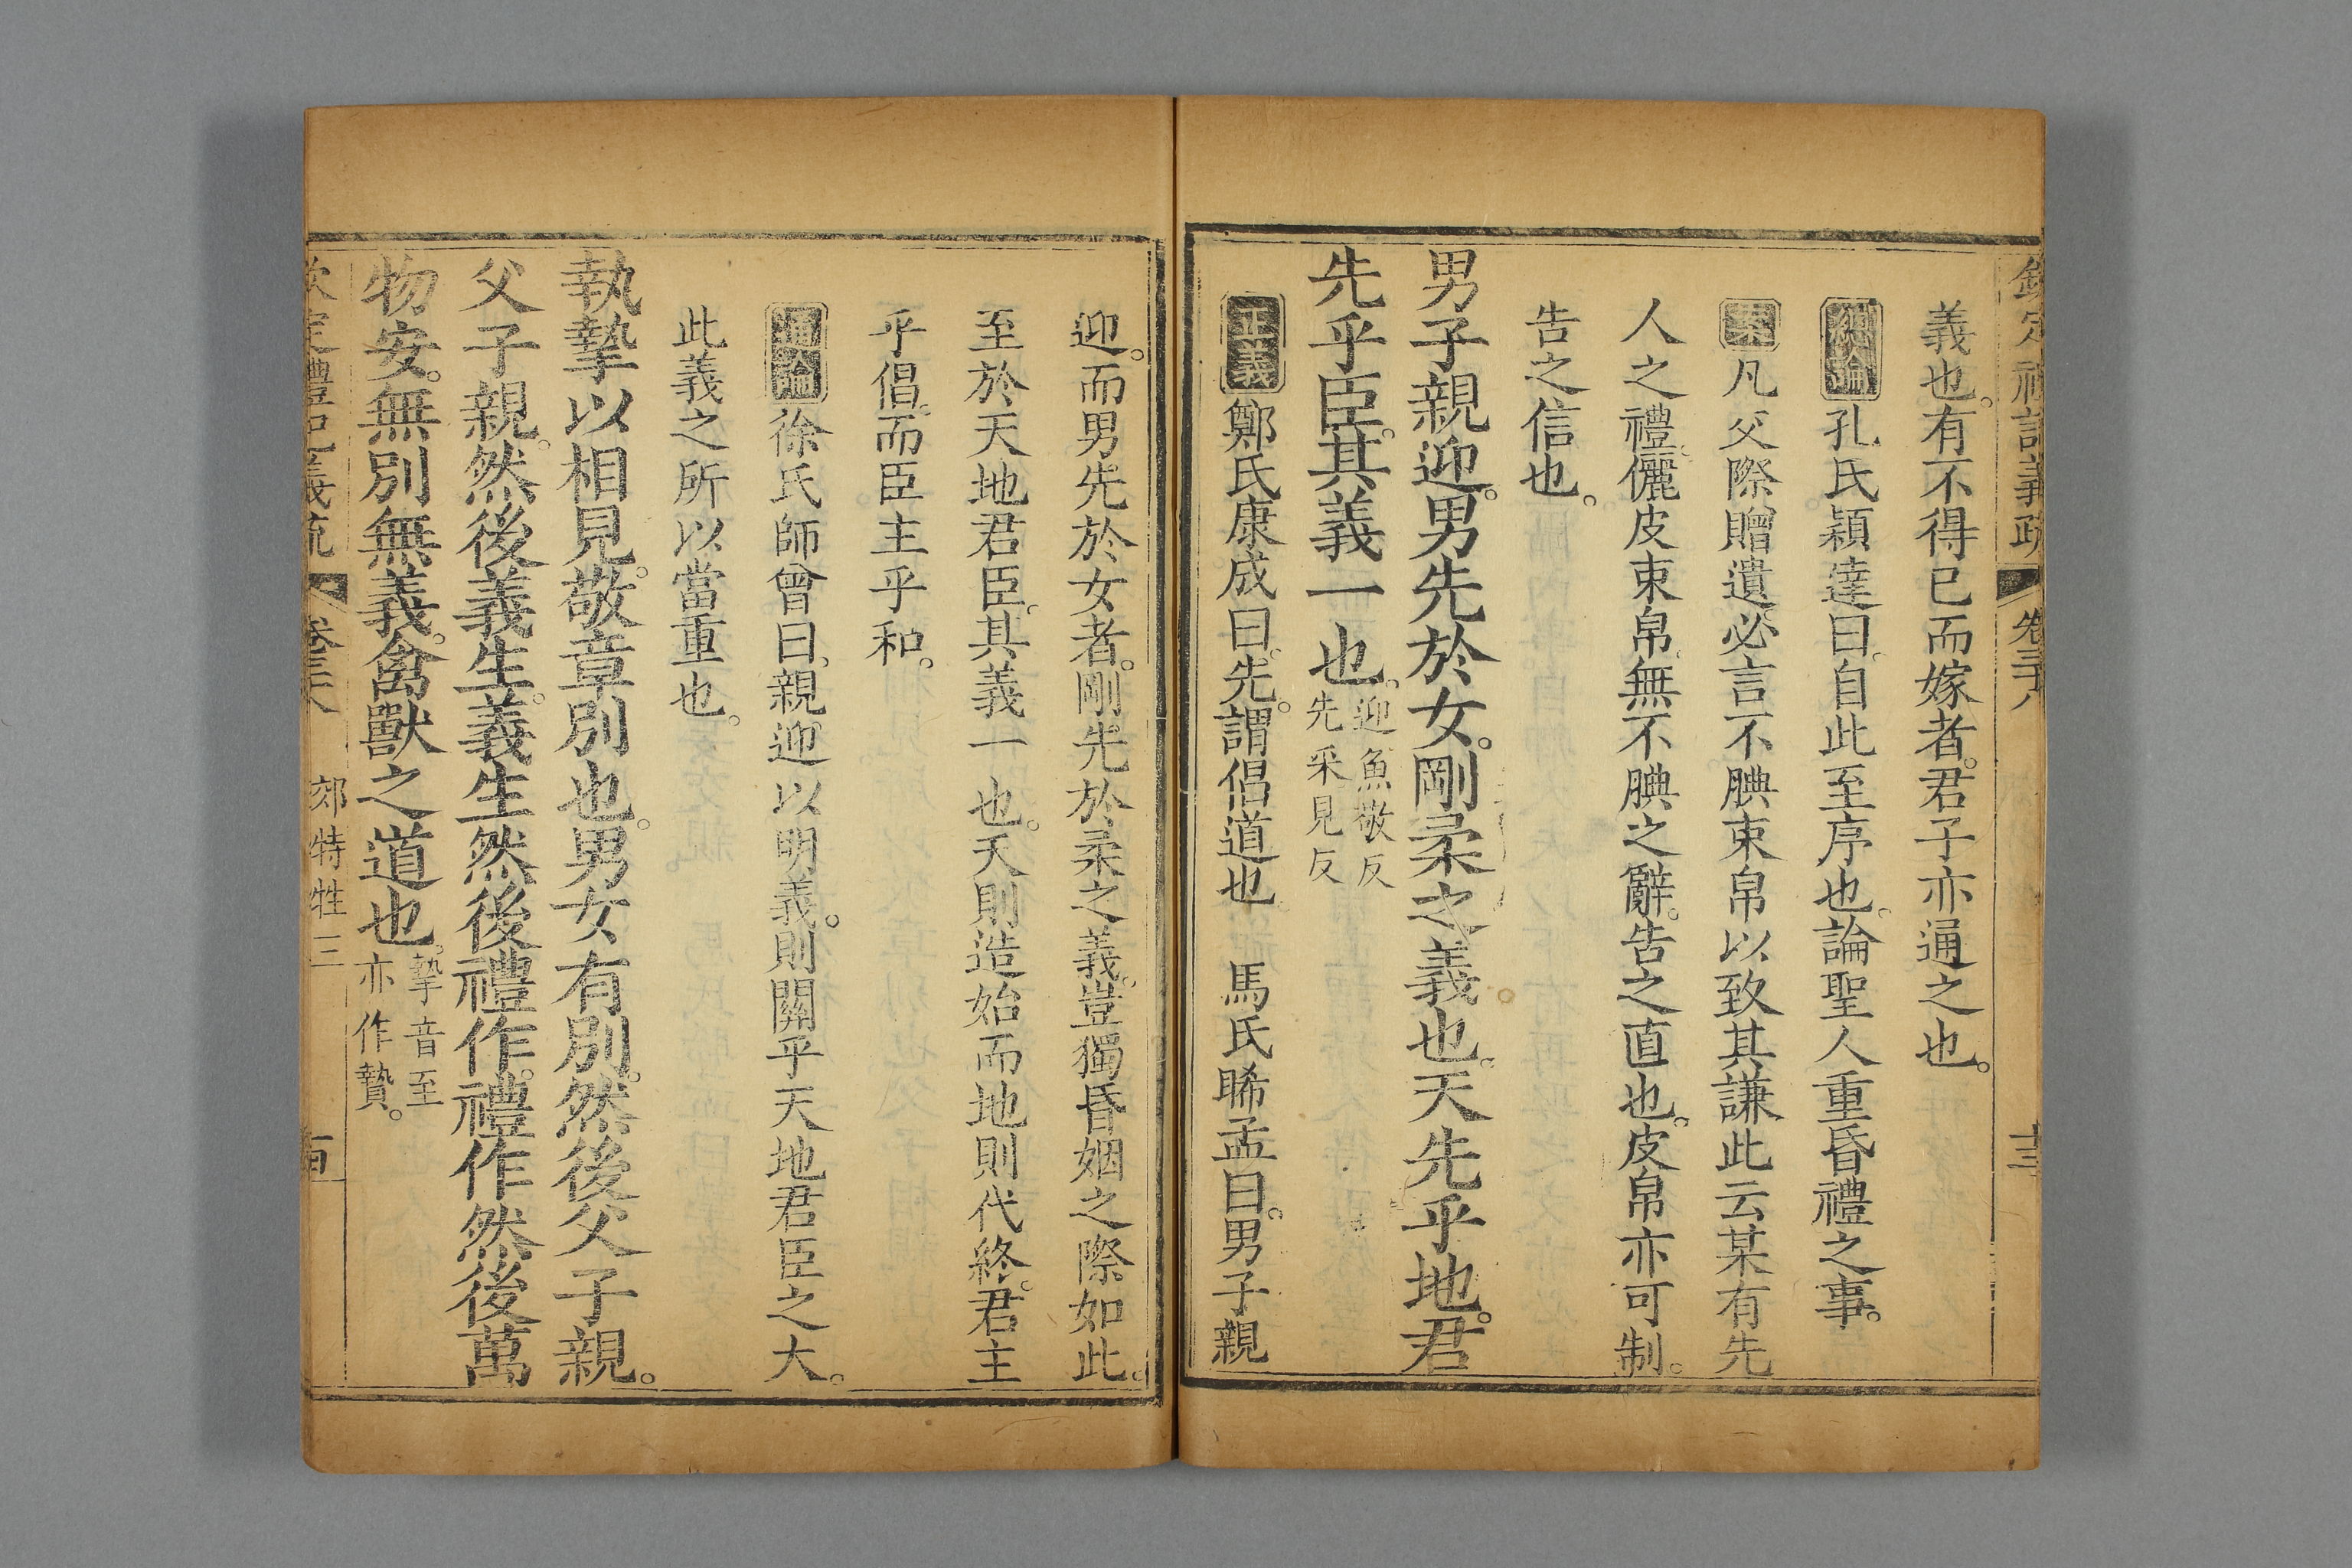 欽定禮記義疏 卷三十八 十三
義也。有不得已而嫁者。君子亦通之也。
總論 孔氏穎達曰。自此至序也。論聖人重昏禮之事。
案 凡父際贈遺。必言不腆。束帛以致其謙。此云某有先
人之禮。儷皮束帛。無不腆之辭。告之直也。皮帛亦可制。
告之信也。
男子親迎。男先於女。剛柔之義也。天先乎地。君
先乎臣。其義一也。迎魚敬反
先采見反
正義 鄭氏康成曰。先。謂倡道也 馬氏睎孟曰。男子親
迎。而男先於女者。剛先於柔之義。豈獨昏姻之際如此。
至於天地君臣。其義一也。天則造始而地則代終。君主
乎倡。而臣主乎和。
通論 徐氏師曾曰。親迎以明義。則關乎天地君臣之大。
此義之所以當重也。
執摯以相見。敬章別也。男女有別。然後父子親。
父子親。然後義生。義生然後禮作。禮作然後萬
物安。無別無義。禽獸之道也。摯音至
亦作贄。
欽定禮記義疏 卷三十八 郊特牲三